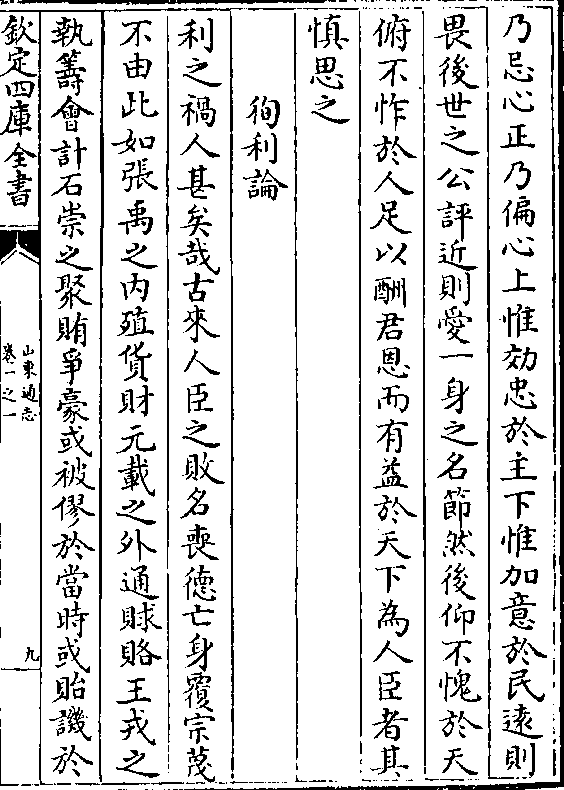 乃忌心正乃偏心上惟効忠於主下惟加意於民逺則
畏後世之公評近則愛一身之名節然後仰不愧於天
俯不怍於人足以酬君恩而有益於天下為人臣者其
慎思之
徇利論
利之禍人甚矣哉古來人臣之敗名喪德亡身覆宗蔑
不由此如張禹之内殖貨財元載之外通賕賂王戎之
執籌會計石崇之聚賄爭豪或被僇於當時或貽譏於
欽定四庫全書
山東通志
卷一之一
九